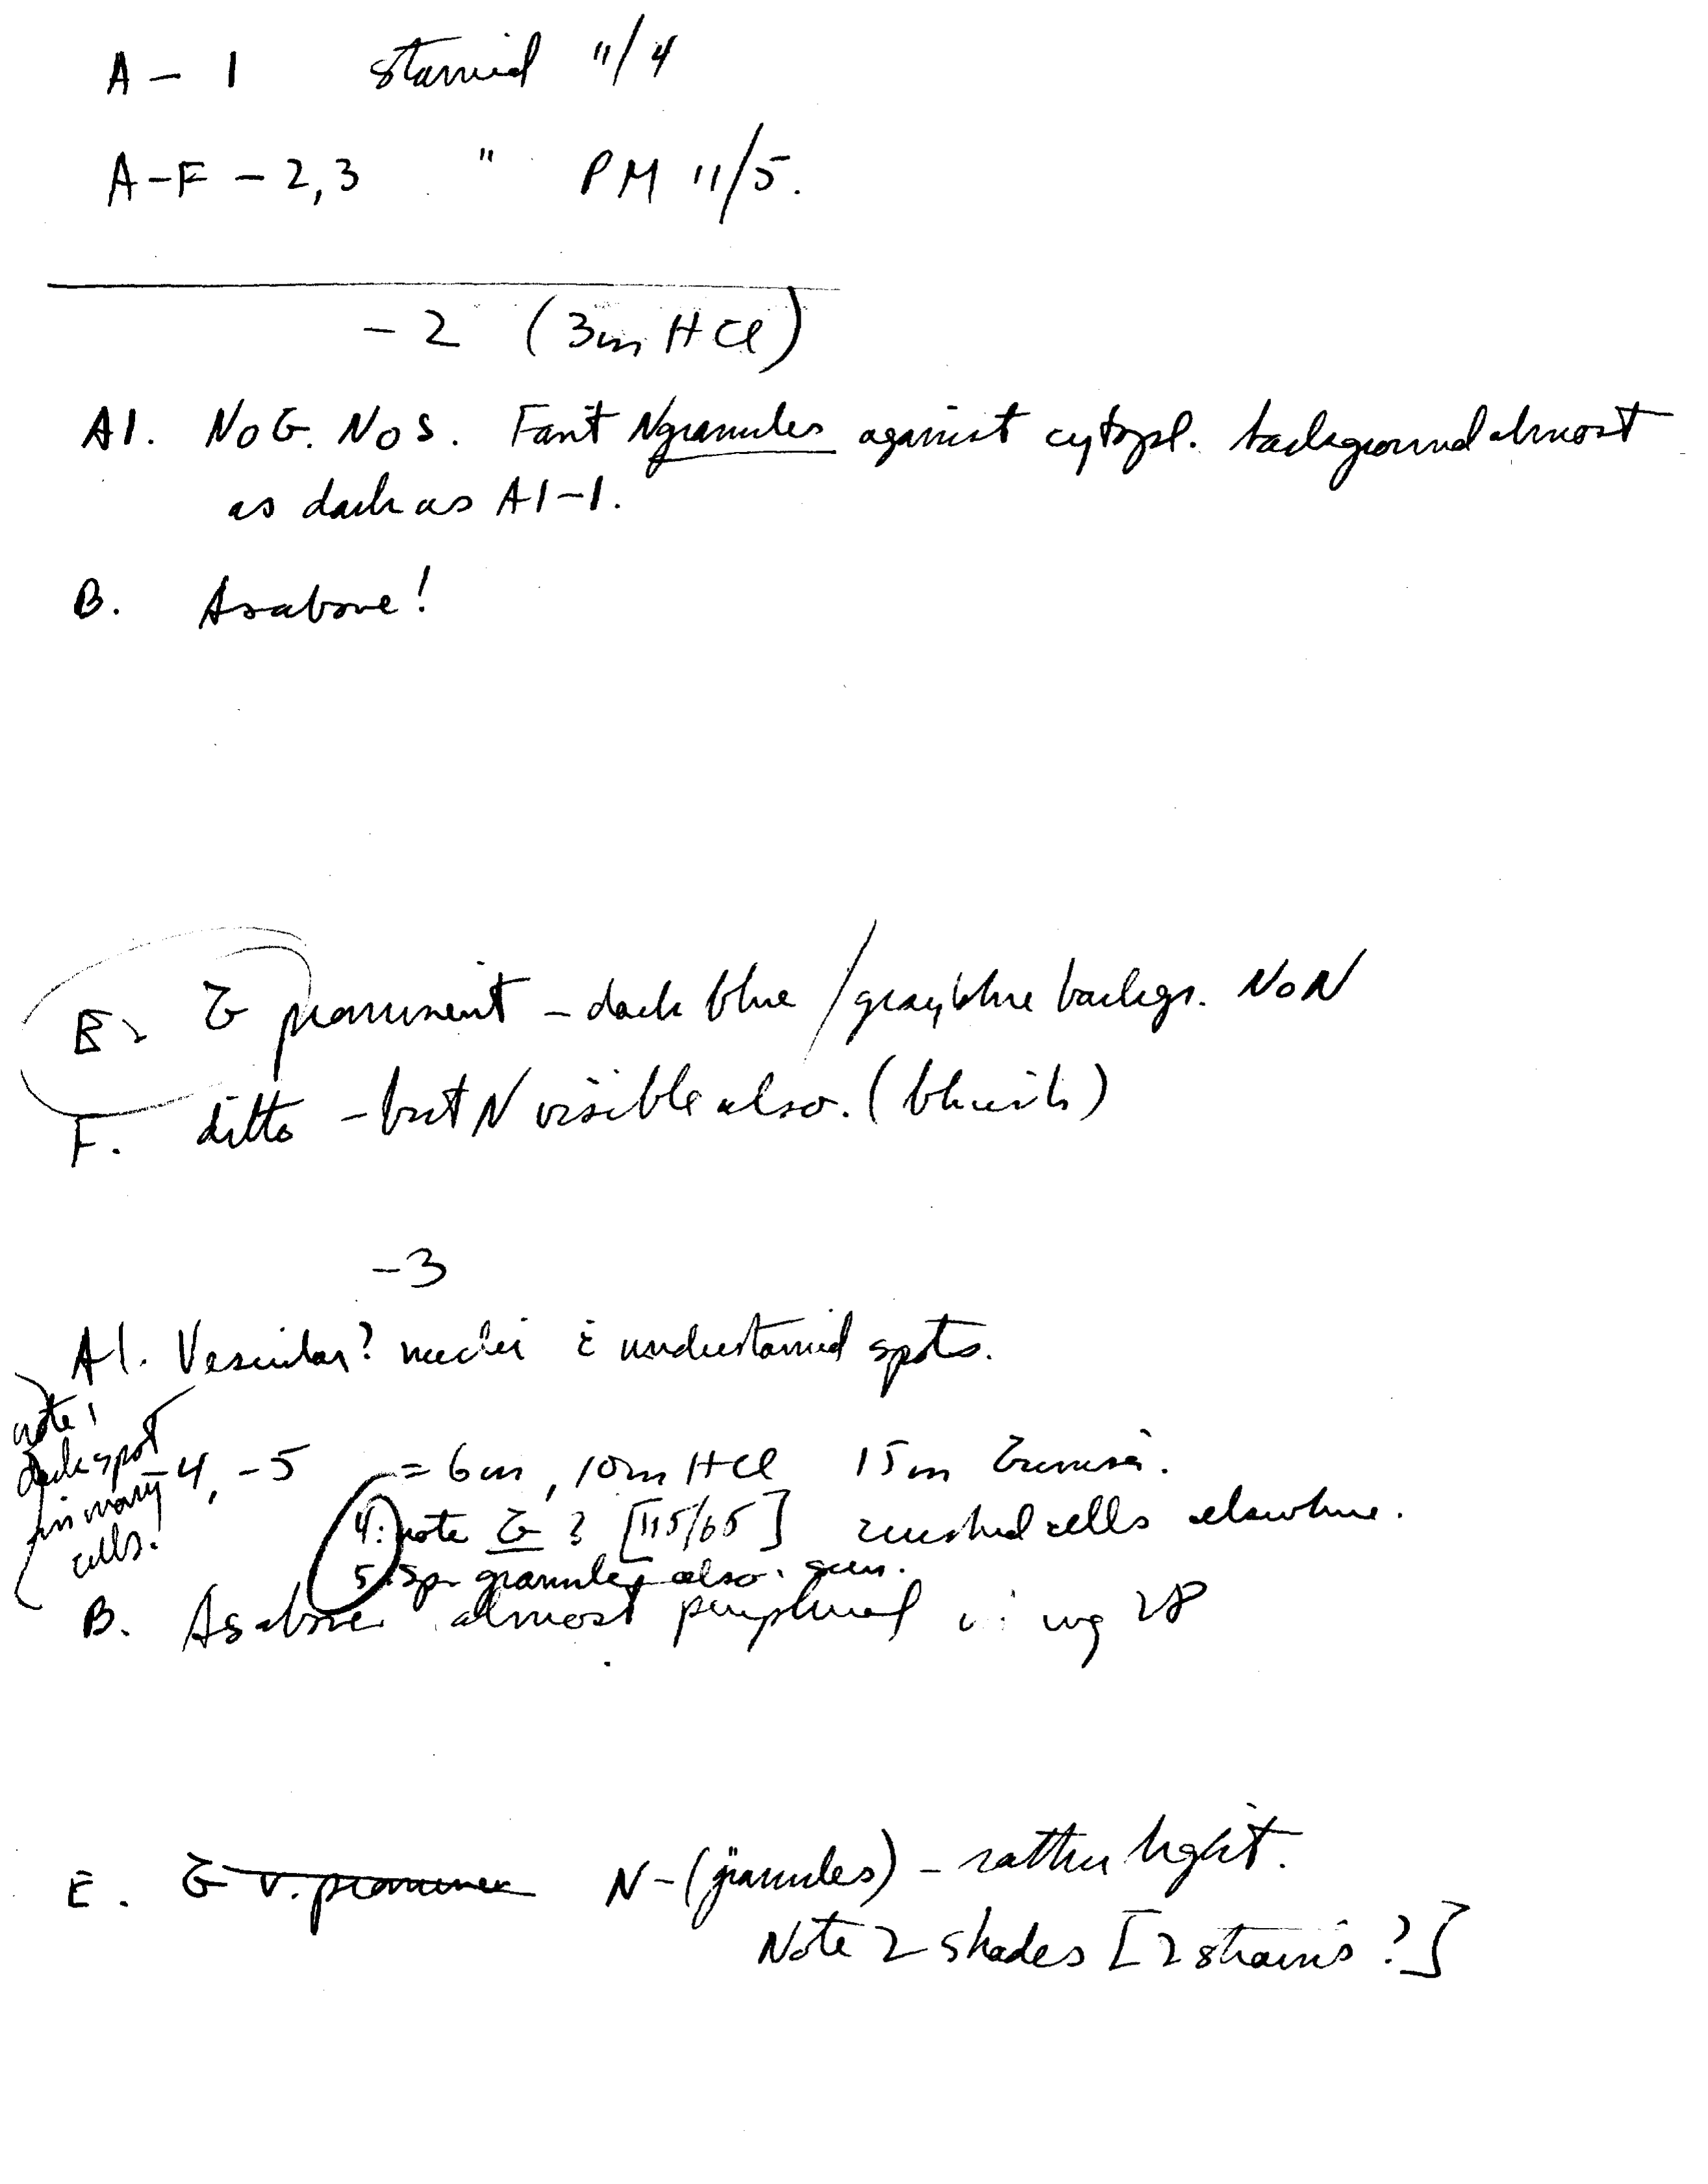 A – 1 stained 11/4
A–F – 2,3 " PM 11/5.
– 2 (3m HCl)
A1. No G. No S. Faint N granules against cytopl. background almost
as dark as A1–1.
B. As above!
E. G prominent – dark blue / gray blue backgr. No N
F. ditto – but N visible also. (bluish)
– 3
A1. Vesicular? nuclei c̄ understained spots.
note!
dark spot
in many
cells!
–4, –5 = 6m, 10m HCl 15m Giemsa.
4: note G ? [115/65] crushed cells elsewhere.
5: Sp. granules also seen.
B. As above almost peripheral
E. G v. prominen N – (granules) – rather light.
Note 2 shades [2 strains?]